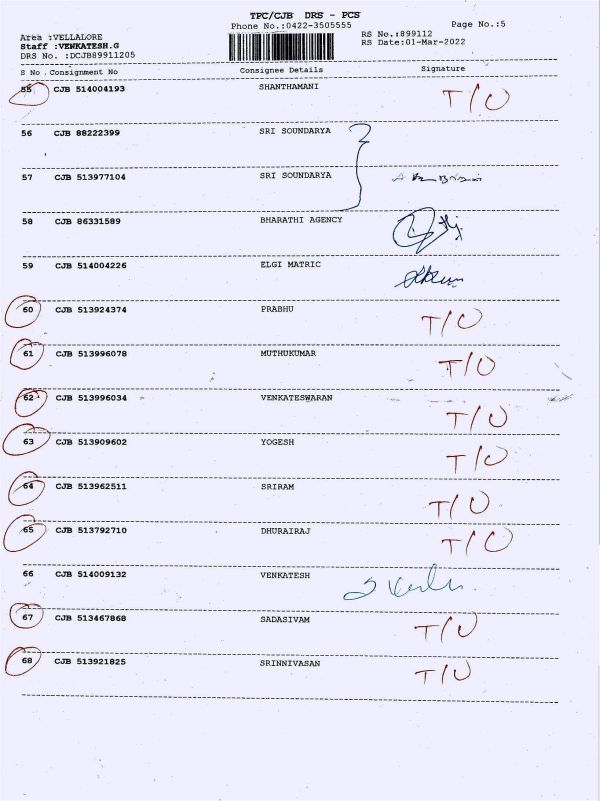 TPC/CJB DRS - PCS
Phone No.:0422-3505555
Page No.:5
Area :VELLALORE
Staff :VENKATESH.G
DRS No. :DCJB89911205
RS No.:899112
RS Date:01-Mar-2022
S No. Consignment No Consignee Details Signature
55 CJB 514004193 SHANTHAMANI T/O
56 CJB 88222399 SRI SOUNDARYA
57 CJB 513977104 SRI SOUNDARYA
58 CJB 86331589 BHARATHI AGENCY
59 CJB 514004226 ELGI MATRIC
60 CJB 513924374 PRABHU T/O
61 CJB 513996078 MUTHUKUMAR T/O
62 CJB 513996034 VENKATESWARAN T/O
63 CJB 513909602 YOGESH T/O
64 CJB 513962511 SRIRAM T/O
65 CJB 513792710 DHURAIRAJ T/O
66 CJB 514009132 VENKATESH
67 CJB 513467868 SADASIVAM T/O
68 CJB 513921825 SRINNIVASAN T/O